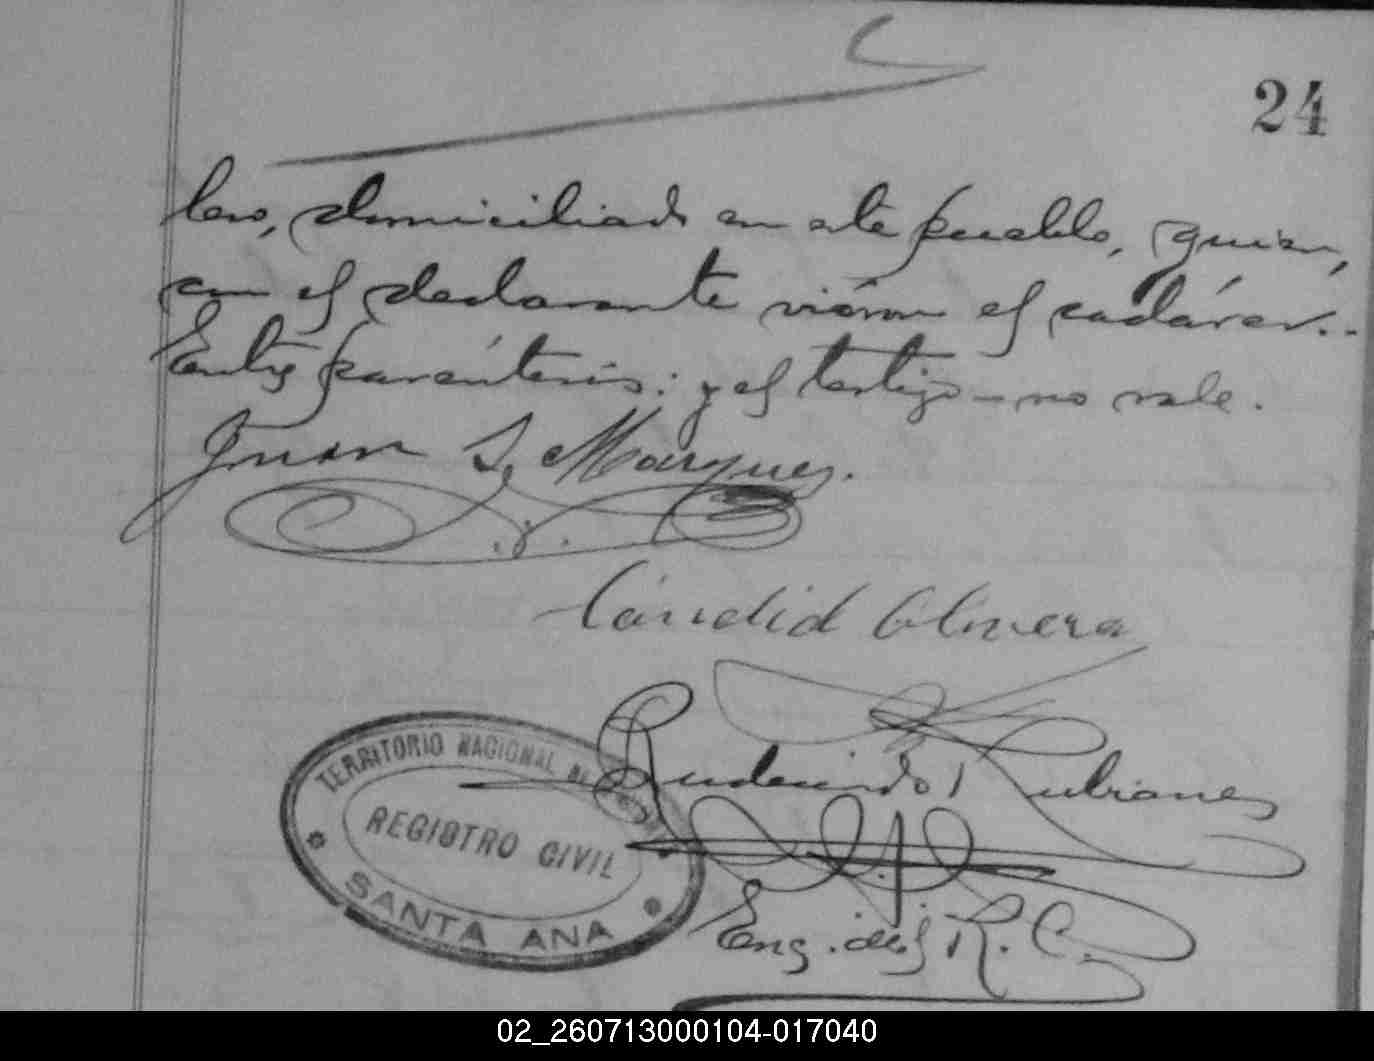 24
lero, domiciliado en este pueblo, quien,
con el declarante viéron el cadáver..
Entre paréntesis: y el testigo - no vale.
Juan S. Marques.
Cándid Olmera
Rudecindo Rubianes
TERRITORIO NACIONAL DE
REGISTRO CIVIL
SANTA ANA
Enc. del R. C.
02_260713000104-017040